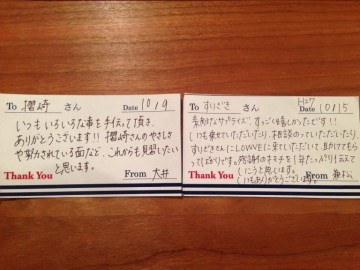 To 摺崎 さん Date 10/9
いつもいろいろな事を手伝って頂き、
ありがとうございます!! 摺崎さんのやさしさ
や努力されている面など、これからも見習いたい
と思います。
Thank You From 大井
To すりざき さん Date H27 10/15
素敵なサプライズ、すっごく嬉しかったです!!
いつも乗せていただいたり、相談のっていただいたり
すりざきさんにLOVVEに来ていただいて、助けてもら
ってばかりです。感謝のキモチを1年たっぷり伝えて
いこうと思います。
いつもありがとうございます。
Thank You From